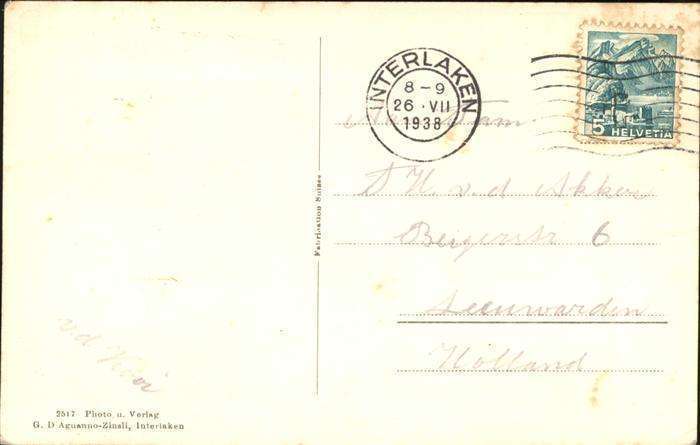 INTERLAKEN
8-9
26·VII
1938
5
HELVETIA
Fam.
H. v. d. Akker
6
Leeuwarden
Holland
Fabrication Suisse
v.d
2517 Photo u. Verlag
G. D'Aguanno-Zinsli, Interlaken